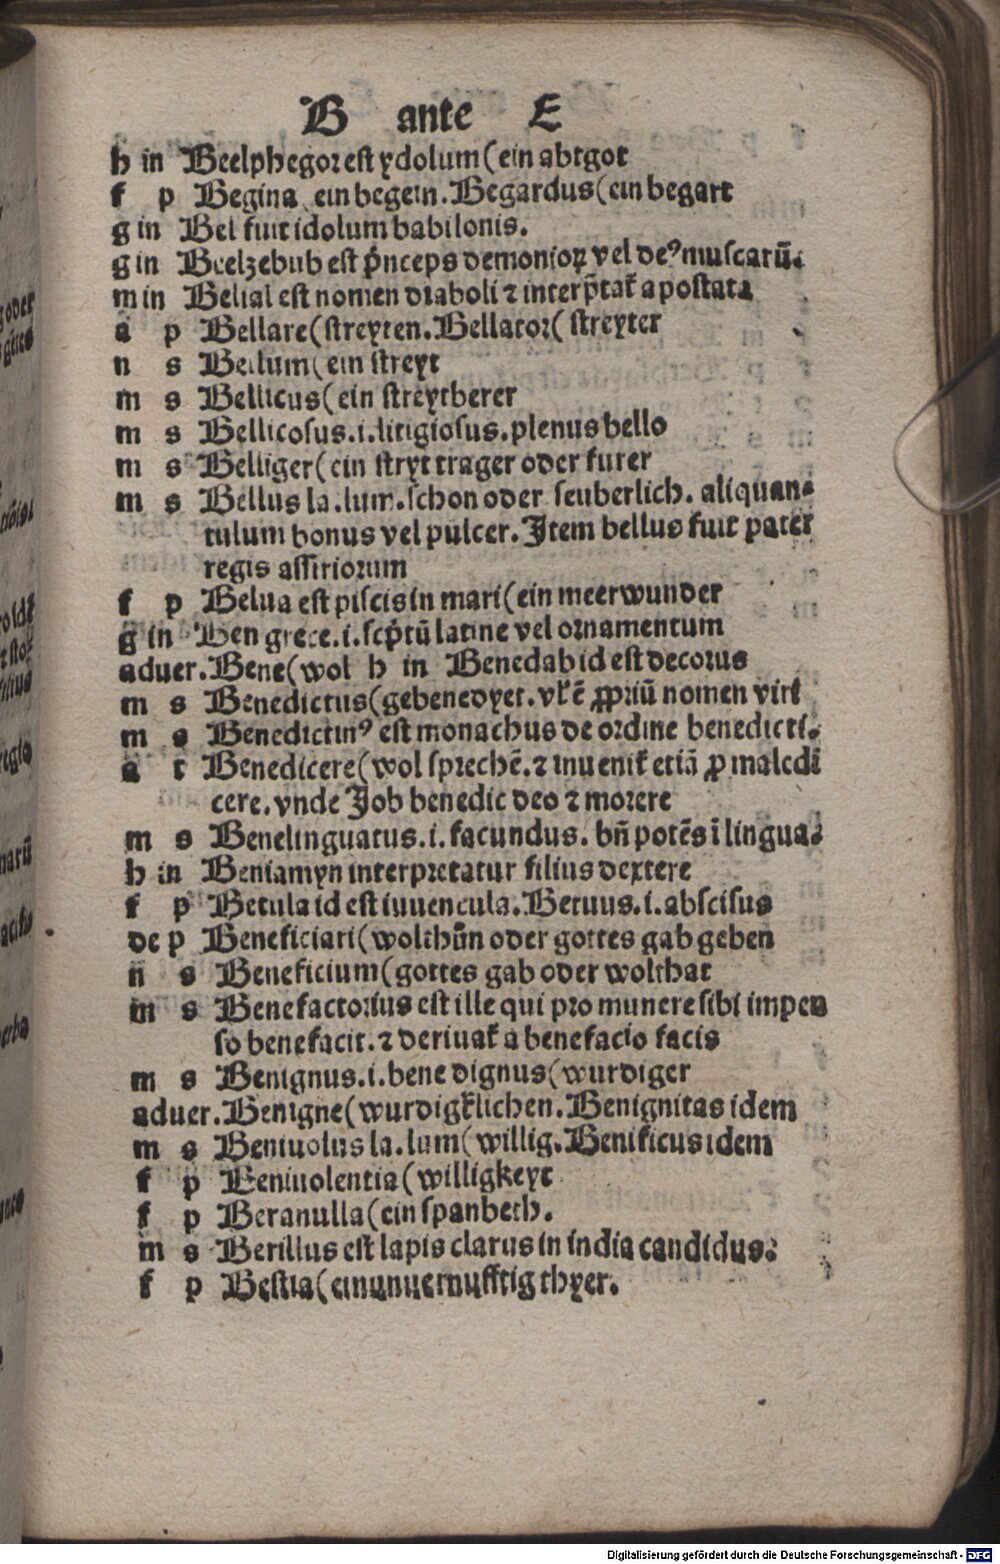 B ante E
h in Beelphegor est ydolum (ein abtgot
f p Begina ein begein. Begardus (ein begart
g in Bel fuit idolum babilonis.
g in Beelzebub est p̄nceps demonioꝝ vel deꝰ muscarū.
m in Belial est nomen diaboli ⁊ interp̄tat̄ apostata
a p Bellare (streyten. Bellator (streyter
n s Bellum (ein streyt
m s Bellicus (ein streytberer
m s Bellicosus .i. litigiosus. plenus bello
m s Belliger (ein stryt trager oder furer
m s Bellus la. lum. schon oder seuberlich. aliquan-
tulum bonus vel pulcer. Item bellus fuit pater
regis assiriorum
f p Belua est piscis in mari (ein meerwunder
g in Ben grece .i. scp̄tū latine vel ornamentum
aduer. Bene (wol h in Benedab id est decorus
m s Benedictus (gebenedyet. vl' ē ꝓpriū nomen viri
m s Benedictinꝰ est monachus de ordine benedicti.
a t Benedicere (wol sprechē. ⁊ inuenit̄ etiā ꝓ maledi
cere. vnde Job benedic deo ⁊ morere
m s Benelinguatus .i. facundus. bn̄ potēs ī lingua.
h in Beniamyn interpretatur filius dextere
f p Betula id est iuuencula. Betuus .i. abscisus
de p Beneficiari (wolthun oder gottes gab geben
n s Beneficium (gottes gab oder wolthat
m s Benefactorius est ille qui pro munere sibi impen
so benefacit. ⁊ deriuat̄ a benefacio facis
m s Benignus .i. bene dignus (wurdiger
aduer. Benigne (wurdigk̄lichen. Benignitas idem
m s Beniuolus la. lum (willig. Benificus idem
f p Beniuolentia (willigkeyt
f p Beranulla (ein spanbeth.
m s Berillus est lapis clarus in india candidus.
f p Bestia (ein unuernufftig thyer.
Digitalisierung gefördert durch die Deutsche Forschungsgemeinschaft - DFG